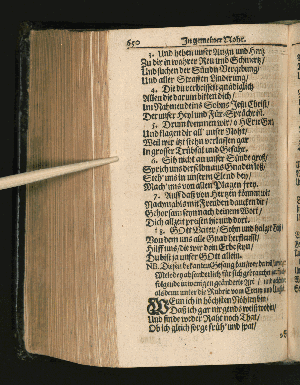 650 In gemeiner Noht.
3. Und heben unser Augn und Hertz
Zu dir in wahrer Reu und Schmertz/
Und suchen der Sündn Vergebung/
Und aller Straffen Linderung/
4. Die du verheissest gnädiglich
Allen die darumb bitten dich/
Im Nahmen deins Sohns Jesu Christ/
Der unser Heyl und Für-Sprächr ist.
5. Drum kommen wir/ o HErre Gott
Und klagen dir all' unser Noht/
Weil wir itzt stehn verlassen gar
In grosser Trübsal und Gefahr.
6. Sih nicht an unser Sünde groß/
Sprich uns derselbn aus Gnaden loß/
Steh' uns in unserm Elend bey/
Mach' uns von allen Plagen frey.
7. Auff daß von Hertzen können wir
Nachmahls mit Freuden dancken dir/
Gehorsam seyn nach deinem Wort/
Dich allzeit preisen hie und dort.
GOtt Vatter/ Sohn und heilge Geist
Von dem uns alle Gnad herfleusst/
Hilff uns/ die wir dein Erbe seyn/
Du bist ja unser GOtt allein.
NB. Diesen bekanten Gesang
Melodey absonderlich
folgende
als denn unser
WEnn ich in höchsten Nöhten bin/
Daß ich gar nirgend weiß wohin/
Und finde weder Raht noch That/
Ob ich gleich sorge früh' und spat/